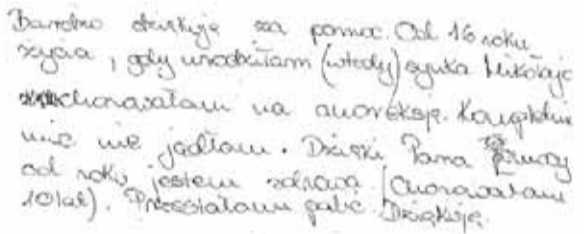 Bardzo dziękuję za pomoc. Od 16 roku
życia, gdy urodziłam (wtedy) synka Mikołaja
chorowałam na anoreksję. Kompletnie
nic nie jadłam. Dzięki Pana
od roku jestem zdrowa (chorowałam
10 lat). Przestałam palić. Dziękuję.